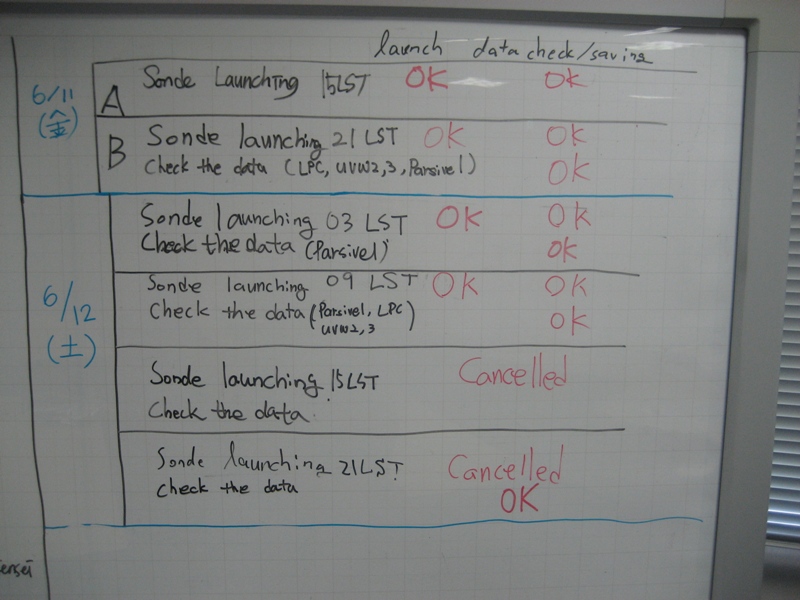 launch data check/saving
6/11
(金)
A
Sonde Launching 15LST OK OK
B
Sonde launching 21 LST OK OK
Check the data (LPC, UVW2,3, Parsivel) OK
6/12
(土)
Sonde launching 03 LST OK OK
Check the data (Parsivel) OK
Sonde launching 09 LST OK OK
Check the data (Parsivel, LPC OK
UVW2,3)
Sonde launching 15LST Cancelled
Check the data
Sonde launching 21LST Cancelled
Check the data OK